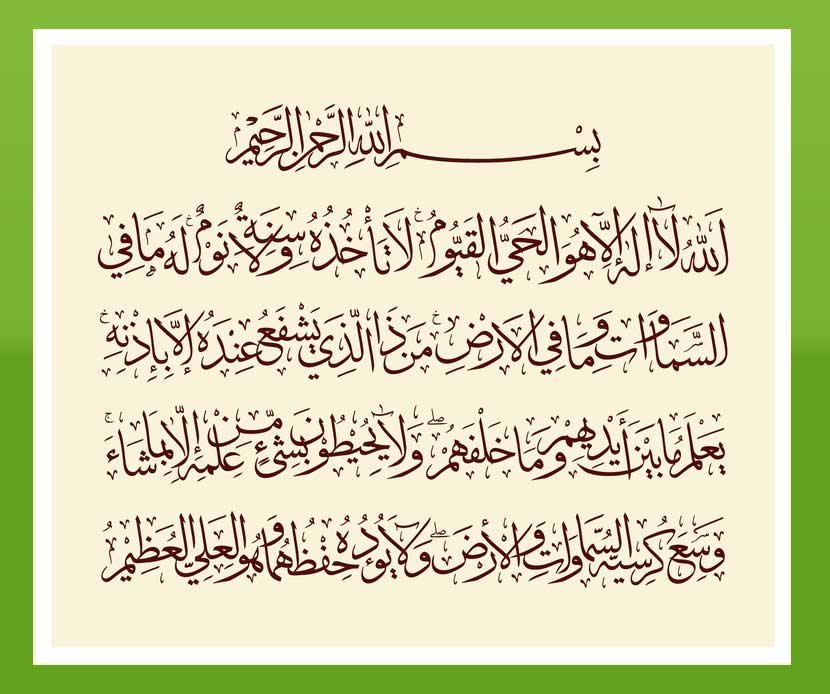 بِسْمِ اللّٰهِ الرَّحْمٰنِ الرَّحِيْمِ
اَللّٰهُ لَآ اِلٰهَ اِلَّا هُوَ الْحَيُّ الْقَيُّوْمُ ۚ لَا تَأْخُذُهٗ سِنَةٌ وَّلَا نَوْمٌ ۚ لَهٗ مَا فِي
السَّمٰوَاتِ وَمَا فِي الْاَرْضِ ۚ مَنْ ذَا الَّذِيْ يَشْفَعُ عِنْدَهٗ اِلَّا بِاِذْنِهٖ ۚ
يَعْلَمُ مَا بَيْنَ أَيْدِيْهِمْ وَمَا خَلْفَهُمْ ۖ وَلَا يُحِيْطُوْنَ بِشَيْءٍ مِّنْ عِلْمِهٖ اِلَّا بِمَا شَاءَ ۚ
وَسِعَ كُرْسِيُّهُ السَّمَاوَاتِ وَالْأَرْضَ ۖ وَلَا يَؤُدُهٗ حِفْظُهُمَا وَهُوَ الْعَلِيُّ الْعَظِيْمُ